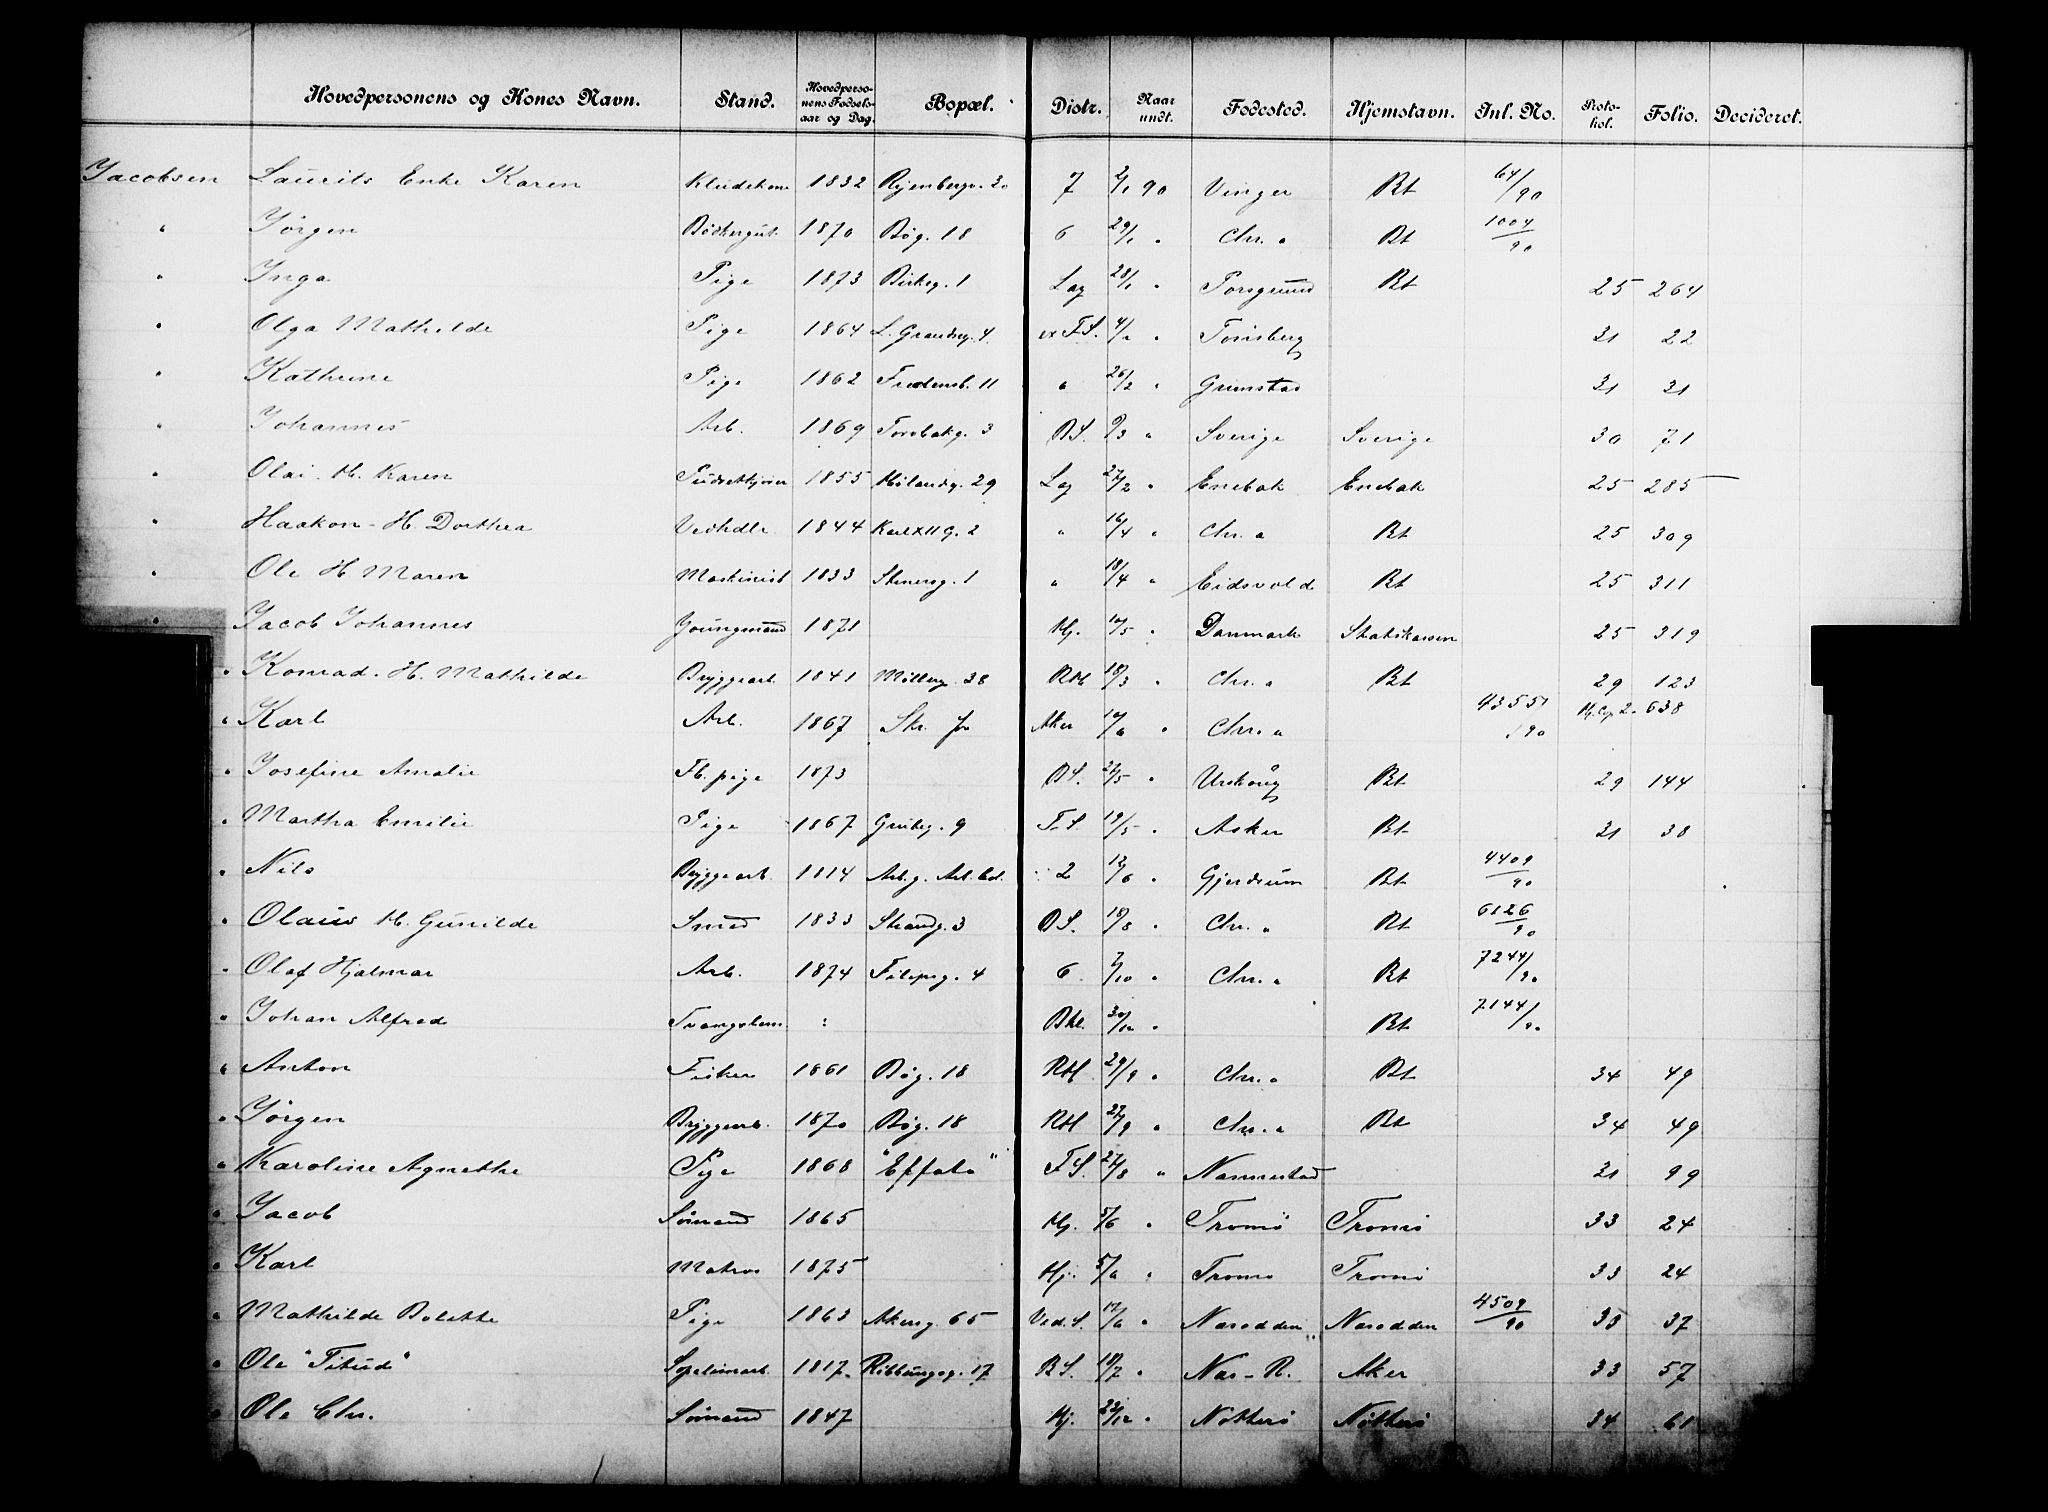 Hovedpersonens og Kones Navn. Stand. Hovedpersonens Fødselsaar og Dag. Bopæl. Distr. Naar undt. Fødested. Hjemstavn. Inl. No. Protokol. Folio. Decideret.
Jacobsen Laurits Enke Karen 1832 7 2/1 90 Vinger Bt 64/90
" Jørgen 1870 Bøg. 18 6 29/1 " Chr. a Bt 1004/90
" Inga Pige 1873 Birkeg. 1 Lag 28/1 " Porsgrund Bt 25 264
" Olga Mathilde Pige 1864 L. Grændseg. 4 F.S. 4/2 " Tønsberg 31 22
" Kathrine Pige 1862 Fredensb. 11 " 26/2 " Grimstad 31 31
" Johannes Arb. 1869 Torvbakg. 3 B.S. 9/3 " Sverige Sverige 30 71
" Olai H. Karen 1855 Hølandsg. 29 Lag 27/2 " Enebak Enebak 25 285
" Haakon - H. Dorthea Vedhdlr. 1844 Karl XII G. 2 " 16/4 " Chr. a Bt 25 309
" Ole H Maren Maskinist 1833 Stenersg. 1 " 18/4 " Eidsvold Bt 25 311
" Jacob Johannes Joungmand 1871 Hj. 10/5 " Danmark Statskassen 25 319
" Konrad. H. Mathilde Bryggearb. 1841 Møllerg. 38 Rbl 18/3 " Chr. a Bt 29 123
" Karl Arb. 1867 Aker 10/6 " Chr. a 4355/90 638
" Josefine Amalie Fb. pige 1873 B.S. 22/5 " Urskoug Bt 29 144
" Martha Emilie Pige 1867 Grubeg. 9 F.S. 19/5 " Asker Bt 31 38
" Nils Bryggearb. 1814 Arb.g. Arb.bol. 2 12/6 " Gjerdrum Bt 4409/90
" Olaus H. Gunilde Smed 1833 Strandg. 3 B.S. 18/8 " Chr. a Bt 6126/90
" Olaf Hjalmar Arb. 1874 Filipsg. 4 6 7/10 " Chr. a Bt 7244/90
" Johan Alfred Bkl. 30/12 " Bt 7144/90
" Anton Fisker 1861 Bøg. 18 Rbl 29/9 " Chr. a Bt 34 49
" Jørgen Bryggearb. 1870 Bøg. 18 Rbl 27/9 " Chr. a Bt 34 49
" Karoline Agnethe Pige 1868 "Effata" F.S. 27/8 " Nannestad 31 99
" Jacob Sømand 1865 Hj. 5/6 " Tromø Tromø 33 24
" Karl Matros 1875 Hj. 5/6 " Tromø Tromø 33 24
" Mathilde Bolette Pige 1863 Akersg. 65 Ved. S. 17/6 " Næsodden Næsodden 4509/90 33 37
" Ole "Titud" 1817 Ribbungsg. 17 B.S. 18/7 " Næs - R. Aker 33 57
" Ole Chr. Sømand 1847 Hj. 22/12 " Nøtterø Nøtterø 34 61